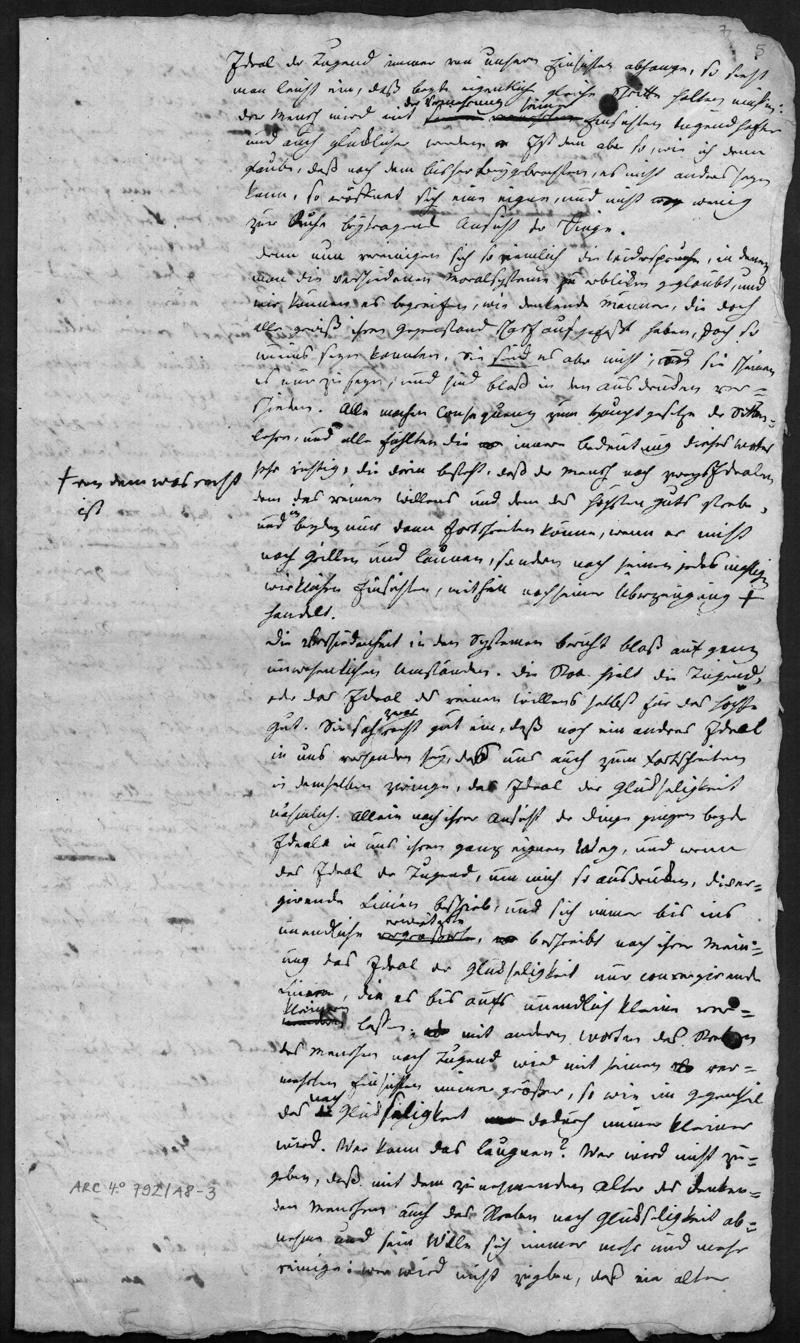 5
Ideal der Tugend immer von unsern Einsichten abhange, so sieht
man leicht ein, daß beyde eigentlich gleiche Schritte halten müssen:
der Mensch wird mit der Vermehrung seiner Einsichten tugendhafter
und auch glücklicher werden. Ist dem aber so, wie ich denn
glaube, daß nach dem bisher beygebrachten, es nicht anders seyn
kann, so eröffnet sich eine eigene, und nicht wenig
zur Ruhe beytragende Ansicht der Dinge.
Denn nun vereinigen sich so ziemlich die Widersprüche, in denen
man die verschiedenen Moralsysteme zu erblicken geglaubt, und
wir können es begreifen, wie denkende Männer, die doch
alle gewiß ihren Gegenstand scharf aufgefaßt haben, doch so
uneins seyn konnten. Sie sind es aber nicht; sie scheinen
es nur zu seyn, und sind bloß in den Ausdrücken ver-
schieden. Alle machen Consequenz zum Hauptgesetze der Sitten-
lehre, und alle fühlten die innere Bedeutung dieses Wortes
sehr richtig, die darin besteht, daß der Mensch nach zwey Idealen
dem des reinen Willens und dem des höchsten Guts strebe,
und in beyden nur dann fortschreiten könne, wenn er nicht
nach Grillen und Launen, sondern nach seinen jedesmaligen
wirklichen Einsichten, mithin nach seiner Überzeugung +
handelt.
+ von dem was recht
ist
Die Verschiedenheit in den Systemen beruht bloß auf ganz
unwesentlichen Umständen. Die Stoa hielt die Tugend,
oder das Ideal des reinen Willens selbst für das höchste
Gut. Sie sah zwar recht gut ein, daß noch ein anderes Ideal
in uns vorhanden sey, das uns auch zum Fortschreiten
in demselben zwinge, das Ideal der Glückseligkeit
nähmlich. Allein nach ihrer Ansicht der Dinge gingen beyde
Ideale in uns ihren ganz eignen Weg, und wenn
das Ideal der Tugend, um mich so auszudrücken, diver-
girende Linien beschrieb, und sich immer bis ins
unendliche erweiterte, beschreibt nach ihrer Mein-
ung das Ideal der Glückseligkeit nur convergirende
Linien, die es bis aufs unendlich kleine ver-
kleinern lassen; mit andern Worten das Streben
des Menschen nach Tugend wird mit seinen ver-
mehrten Einsichten immer größer, so wie im Gegentheil
das nach Glückseligkeit dadurch immer kleiner
wird. Wer kann das läugnen? Wer wird nicht zu-
geben, daß mit dem zunehmenden Alter des denken-
den Menschen auch das Streben nach Glückseligkeit ab-
nehme und sein Wille sich immer mehr und mehr
reinige: wer wird nicht zugeben, daß ein alter
ARC 4º 792/A8-3